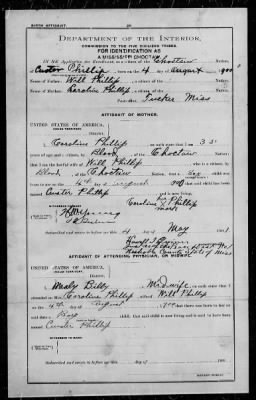 BIRTH AFFIDAVIT.
DEPARTMENT OF THE INTERIOR,
COMMISSION TO THE FIVE CIVILIZED TRIBES.
FOR IDENTIFICATION AS
A MISSISSIPPI CHOCTAW
Choctaw Nation,
Custer Phillip, born on the 4 day of August, 1900
Name of Father: Will Phillip
Name of Mother: Caroline Phillip
Tucker Miss
AFFIDAVIT OF MOTHER.
UNITED STATES OF AMERICA,
INDIAN TERRITORY
District.
I, Caroline Phillip, on oath state that I am 33
years of age and a citizen, by Blood, of the Choctaw Nation;
that I am the lawful wife of Will Phillip, who is a citizen, by
Blood, of the Choctaw Nation; that a Boy child was
born to me on the 4th day of August, 1900; that said child has been
named Custer Phillip, and is now living.
Caroline Phillip
her
mark
Subscribed and sworn to before me this 4 day of May, 1901
Neshoba County State of Miss
AFFIDAVIT OF ATTENDING PHYSICIAN, OR MIDWIFE.
UNITED STATES OF AMERICA,
INDIAN TERRITORY
District.
I, Maly Billy, Midwife, on oath state that I
attended on Mrs. Caroline Phillip, wife of Will Phillip
on the 4th day of August, 1900; that there was born to her on
said date a Boy child; that said child is now living and is said to have been
named Custer Phillip
WITNESSES TO MARK:
Subscribed and sworn to before me this day of